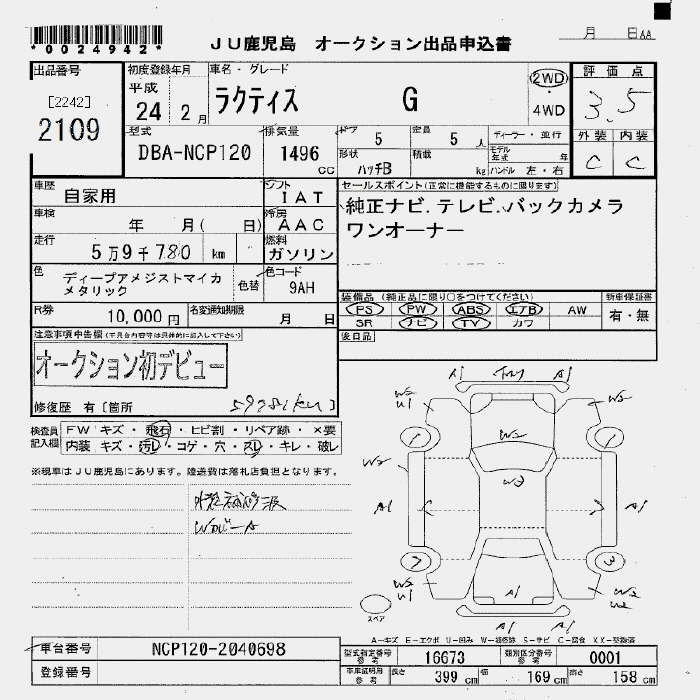 *0024942*
JU鹿児島 オークション出品申込書
月 日AA
出品番号
[2242]
2109
初度登録年月
平成
24 2月
車名・グレード
ラクティス G
2WD
・
4WD
評価点
3.5
外装 内装
C C
型式
DBA-NCP120
排気量
1496
CC
ドア
5
定員
5人
ディーラー・並行
形状
ハッチB
積載
kg
モデル年式 年
ハンドル 左・右
車歴
自家用
シフト
IAT
車検
年 月( 日)
冷房
AAC
走行
5万9千780 km
燃料
ガソリン
色
ディープアメジストマイカ
メタリック
色替
色コード
9AH
セールスポイント(正常に機能するものに限ります)
純正ナビ.テレビ.バックカメラ
ワンオーナー
R券
10,000円
名変通知期限
月 日
装備品 (純正品に限り○をつけてください)
PS PW ABS エアB AW
SR ナビ TV カワ
新車保証書
有・無
後日品
注意事項申告欄
オークション初デビュー
修復歴 有[箇所
59781km]
検査員
記入欄
FW キズ・飛石・ヒビ割・リペア跡・×要
内装 キズ・汚レ・コゲ・穴・スレ・キレ・破レ
※現車はJU鹿児島にあります。陸送費は落札店負担となります。
A1 A1
W2
U1
W2
W2
W2
W3
A1 A1
W2
U1
W2
A1
A1 A1
スペア
A-キズ E-エクボ U-凹み W-補修跡 S-サビ C-腐食 XX-交換済
車台番号
NCP120-2040698
登録番号
型式指定番号
参考
16673
類別区分番号
参考
0001
車庫証明用
参考
長さ 399 cm
幅 169 cm
高さ 158 cm